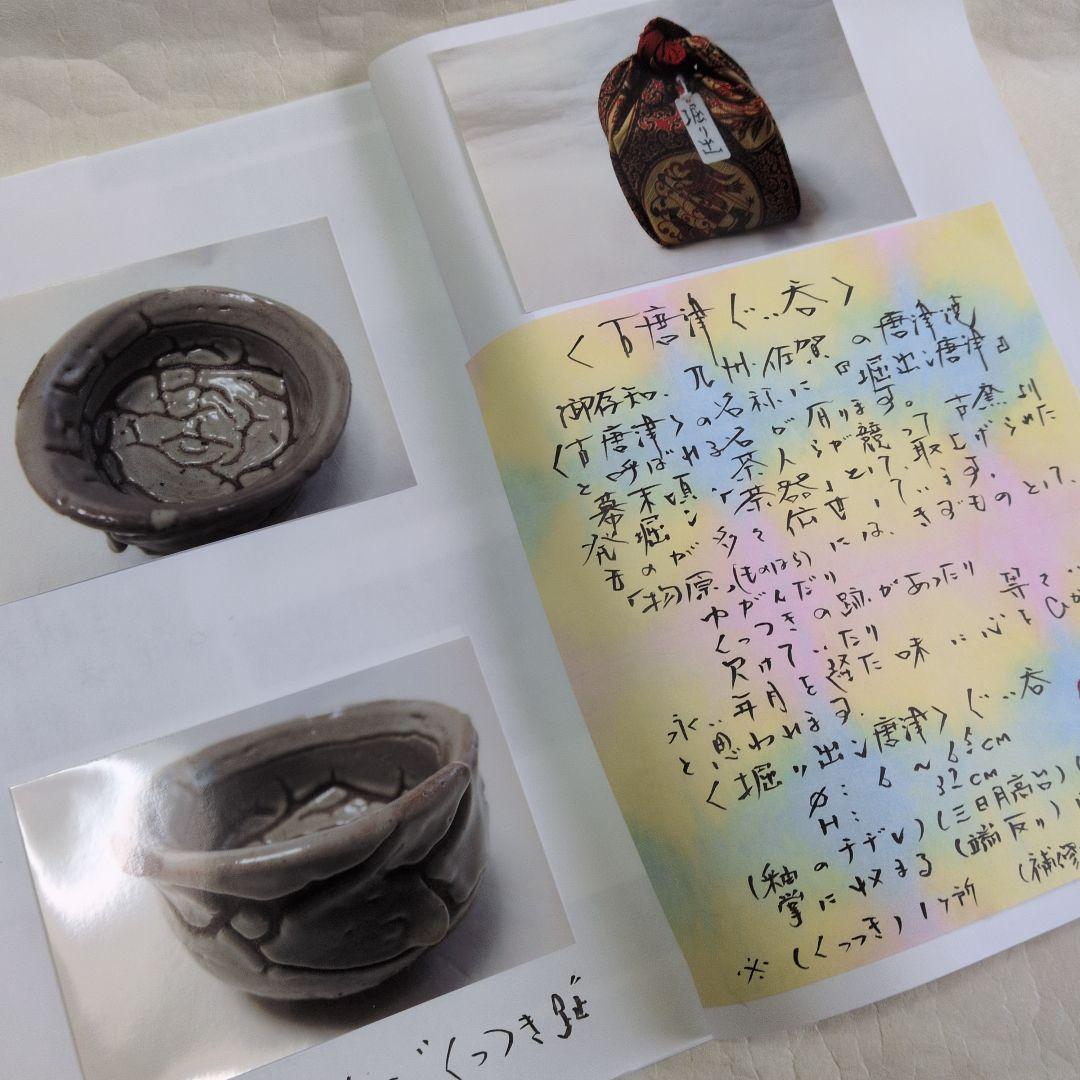 堀り出
〈古唐津ぐい呑〉
御存知、九州・佐賀の唐津港
〈古唐津〉の名称に『堀出し唐津』
と呼ばれる名茶が有ります。
幕末頃、茶人らが競って古窯より
発堀し「茶器」として、取上げられた
ものが多々伝世しています。
「物原」(ものはら)には、きずものとして、
ゆがんだり
くっつきの跡があったり 等々
欠けていたり
永い年月を経た味に心をひか
と思われます。
〈堀り出し唐津〉ぐい呑
φ: 6 ~ 6.5cm
H: 3.2cm
(釉のチヂレ)(三日月高台)
掌に收まる (端反り)
※(くっつき)1ヶ所 (補修
くっつき跡